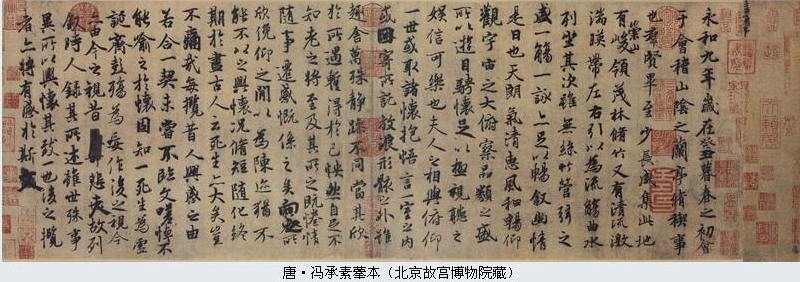 永和九年歲在癸丑暮春之初會
于會稽山陰之蘭亭脩稧事
也群賢畢至少長咸集此地
有崇山峻領茂林脩竹又有清流激
湍暎帶左右引以為流觴曲水
列坐其次雖無絲竹管弦之
盛一觴一詠亦足以暢敘幽情
是日也天朗氣清惠風和暢仰
觀宇宙之大俯察品類之盛
所以遊目騁懷足以極視聽之
娛信可樂也夫人之相與俯仰
一世或取諸懷抱悟言一室之內
或因寄所託放浪形骸之外雖
趣舍萬殊靜躁不同當其欣
於所遇蹔得於己怏然自足不
知老之將至及其所之既惓情
隨事遷感慨係之矣向之所
欣俛仰之閒以為陳迹猶不
能不以之興懷況脩短隨化終
期於盡古人云死生亦大矣豈
不痛哉每攬昔人興感之由
若合一契未嘗不臨文嗟悼不
能喻之於懷固知一死生為虛
誕齊彭殤為妄作後之視今
亦由今之視昔悲夫故列
敘時人錄其所述雖世殊事
異所以興懷其致一也後之攬
者亦將有感於斯文
唐·冯承素摹本（北京故宫博物院藏）